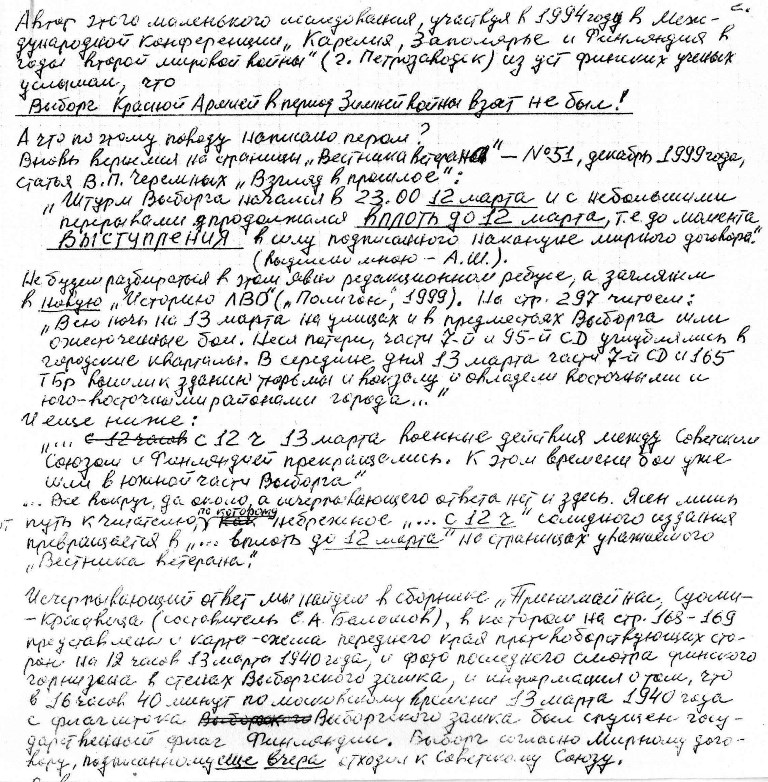 Автор этого маленького исследования, участвуя в 1994 году в Меж-
дународной Конференции „Карелия, Заполярье и Финляндия в
годы Второй мировой войны" (г. Петрозаводск) из уст финских ученых
услышал, что
Выборг Красной Армией в период Зимней войны взят не был!
А что по этому поводу написано пером?
Вновь вернемся на страницы „Вестника ветерана" – №51, декабрь 1999 года,
статья В.П. Черемных „Взгляд в прошлое":
„Штурм Выборга начался в 23.00 12 марта и с небольшими
перерывами продолжался вплоть до 12 марта, т.е до момента
выступления в силу подписанного накануне мирного договора."
(Выделено мною – А.Ш.).
Не будем разбираться в этом явно редакционном ребусе, а заглянем
в новую „Историю ЛВО" („Полигон", 1999). На стр. 297 читаем:
„Всю ночь на 13 марта на улицах и в предместьях Выборга шли
ожесточенные бои. Неся потери, части 7-й и 95-й СД углублялись в
городские кварталы. В середине дня 13 марта части 7-й СД и 165
ТБр вышли к зданию тюрьмы и вокзалу и овладели восточными и
юго-восточными районами города..."
И еще ниже:
„... с 12 часов с 12 ч 13 марта военные действия между Советским
Союзом и Финляндией прекращались. К этом времени бои уже
шли в южной части Выборга"
... Все вокруг, да около, а исчерпывающего ответа нет и здесь. Ясен лишь
путь к читателю, по которому небрежное „... с 12 ч" солидного издания
превращается в „... вплоть до 12 марта" на страницах уважаемого
„Вестника ветерана".
Исчерпывающий ответ мы найдем в сборнике „Принимай нас, Суоми-
-Красавица (составитель Е.А. Балашов), в котором на стр. 168-169
представлены и карта-схема переднего края противоборствующих сто-
рон на 12 часов 13 марта 1940 года, и фото последнего смотра финского
гарнизона в стенах Выборгского замка, и информация о том, что
в 16 часов 40 минут по московскому времени 13 марта 1940 года
с флагштока Выборгского Выборгского замка был спущен госу-
дарственный флаг Финляндии. Выборг согласно Мирному дого-
вору, подписанному еще вчера отходил к Советскому Союзу.